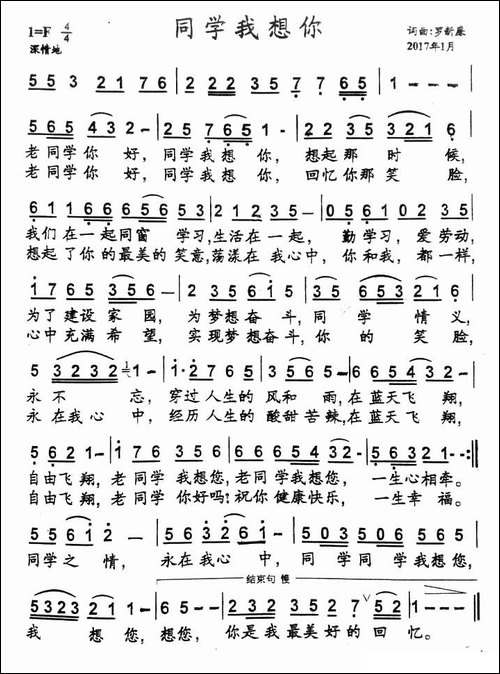 同学我想你
1=F 4/4
深情地
词曲:罗新
2017年1月
5 5 3 2 1 7 6 | 5 5 3 2 3 5 7 7 6 5 | 1 - - - |
5 6 5 4 3 2 - | 2 5 7 6 5 - | 1 0 3 5 3 5 3 2 1 6 |
老同学你好, 同学我想你, 想起那时候,
老同学你好, 同学我想你, 回忆你那笑脸,
6 1 1 6 6 6 5 6 5 3 5 | 2 1 2 3 5 - | 0 5 6 1 0 2 3 5 |
我们在一起同窗学习,生活在一起, 勤学习, 爱劳动,
想起了你的最美的笑意,荡漾在我心中, 你和我, 都一样,
1 7 6 5 3 5 6 - | 2 3 5 6 5 1 | 3 5 6 5 3 2 1 6 |
为了建设家园, 为梦想奋斗,同学情义,
心中充满希望, 实现梦想奋斗,你的笑脸,
5 3 2 3 2 1 - | 1 1 7 6 5 6 3 5 0 3 2 3 5 6 5 |
永不忘, 穿过人生的风和雨,在蓝天飞翔,
永在我心中, 经历人生的酸甜苦辣,在蓝天飞翔,
5 6 2 1 - | 1 7 6 3 5 6 | 6 1 6 5 3 2 - | 5 6 3 2 1 - :||
自由飞翔, 老同学我想您,老同学我想您, 一生心相牵。
自由飞翔, 老同学你好吗?祝你健康快乐, 一生幸福。
5 5 6 1 - | 5 6 3 2 1 2 3 - | 5 0 3 5 0 6 5 3 0 6 |
同学之情, 永在我心中, 同学同学我想您,
结束句 慢
5 3 2 3 2 1 - | 6 5 - - | 2 3 2 2 2 3 5 7 6 | 5 2 | 1 - - - ||
我想您,想您, 你是我最美好的回忆。